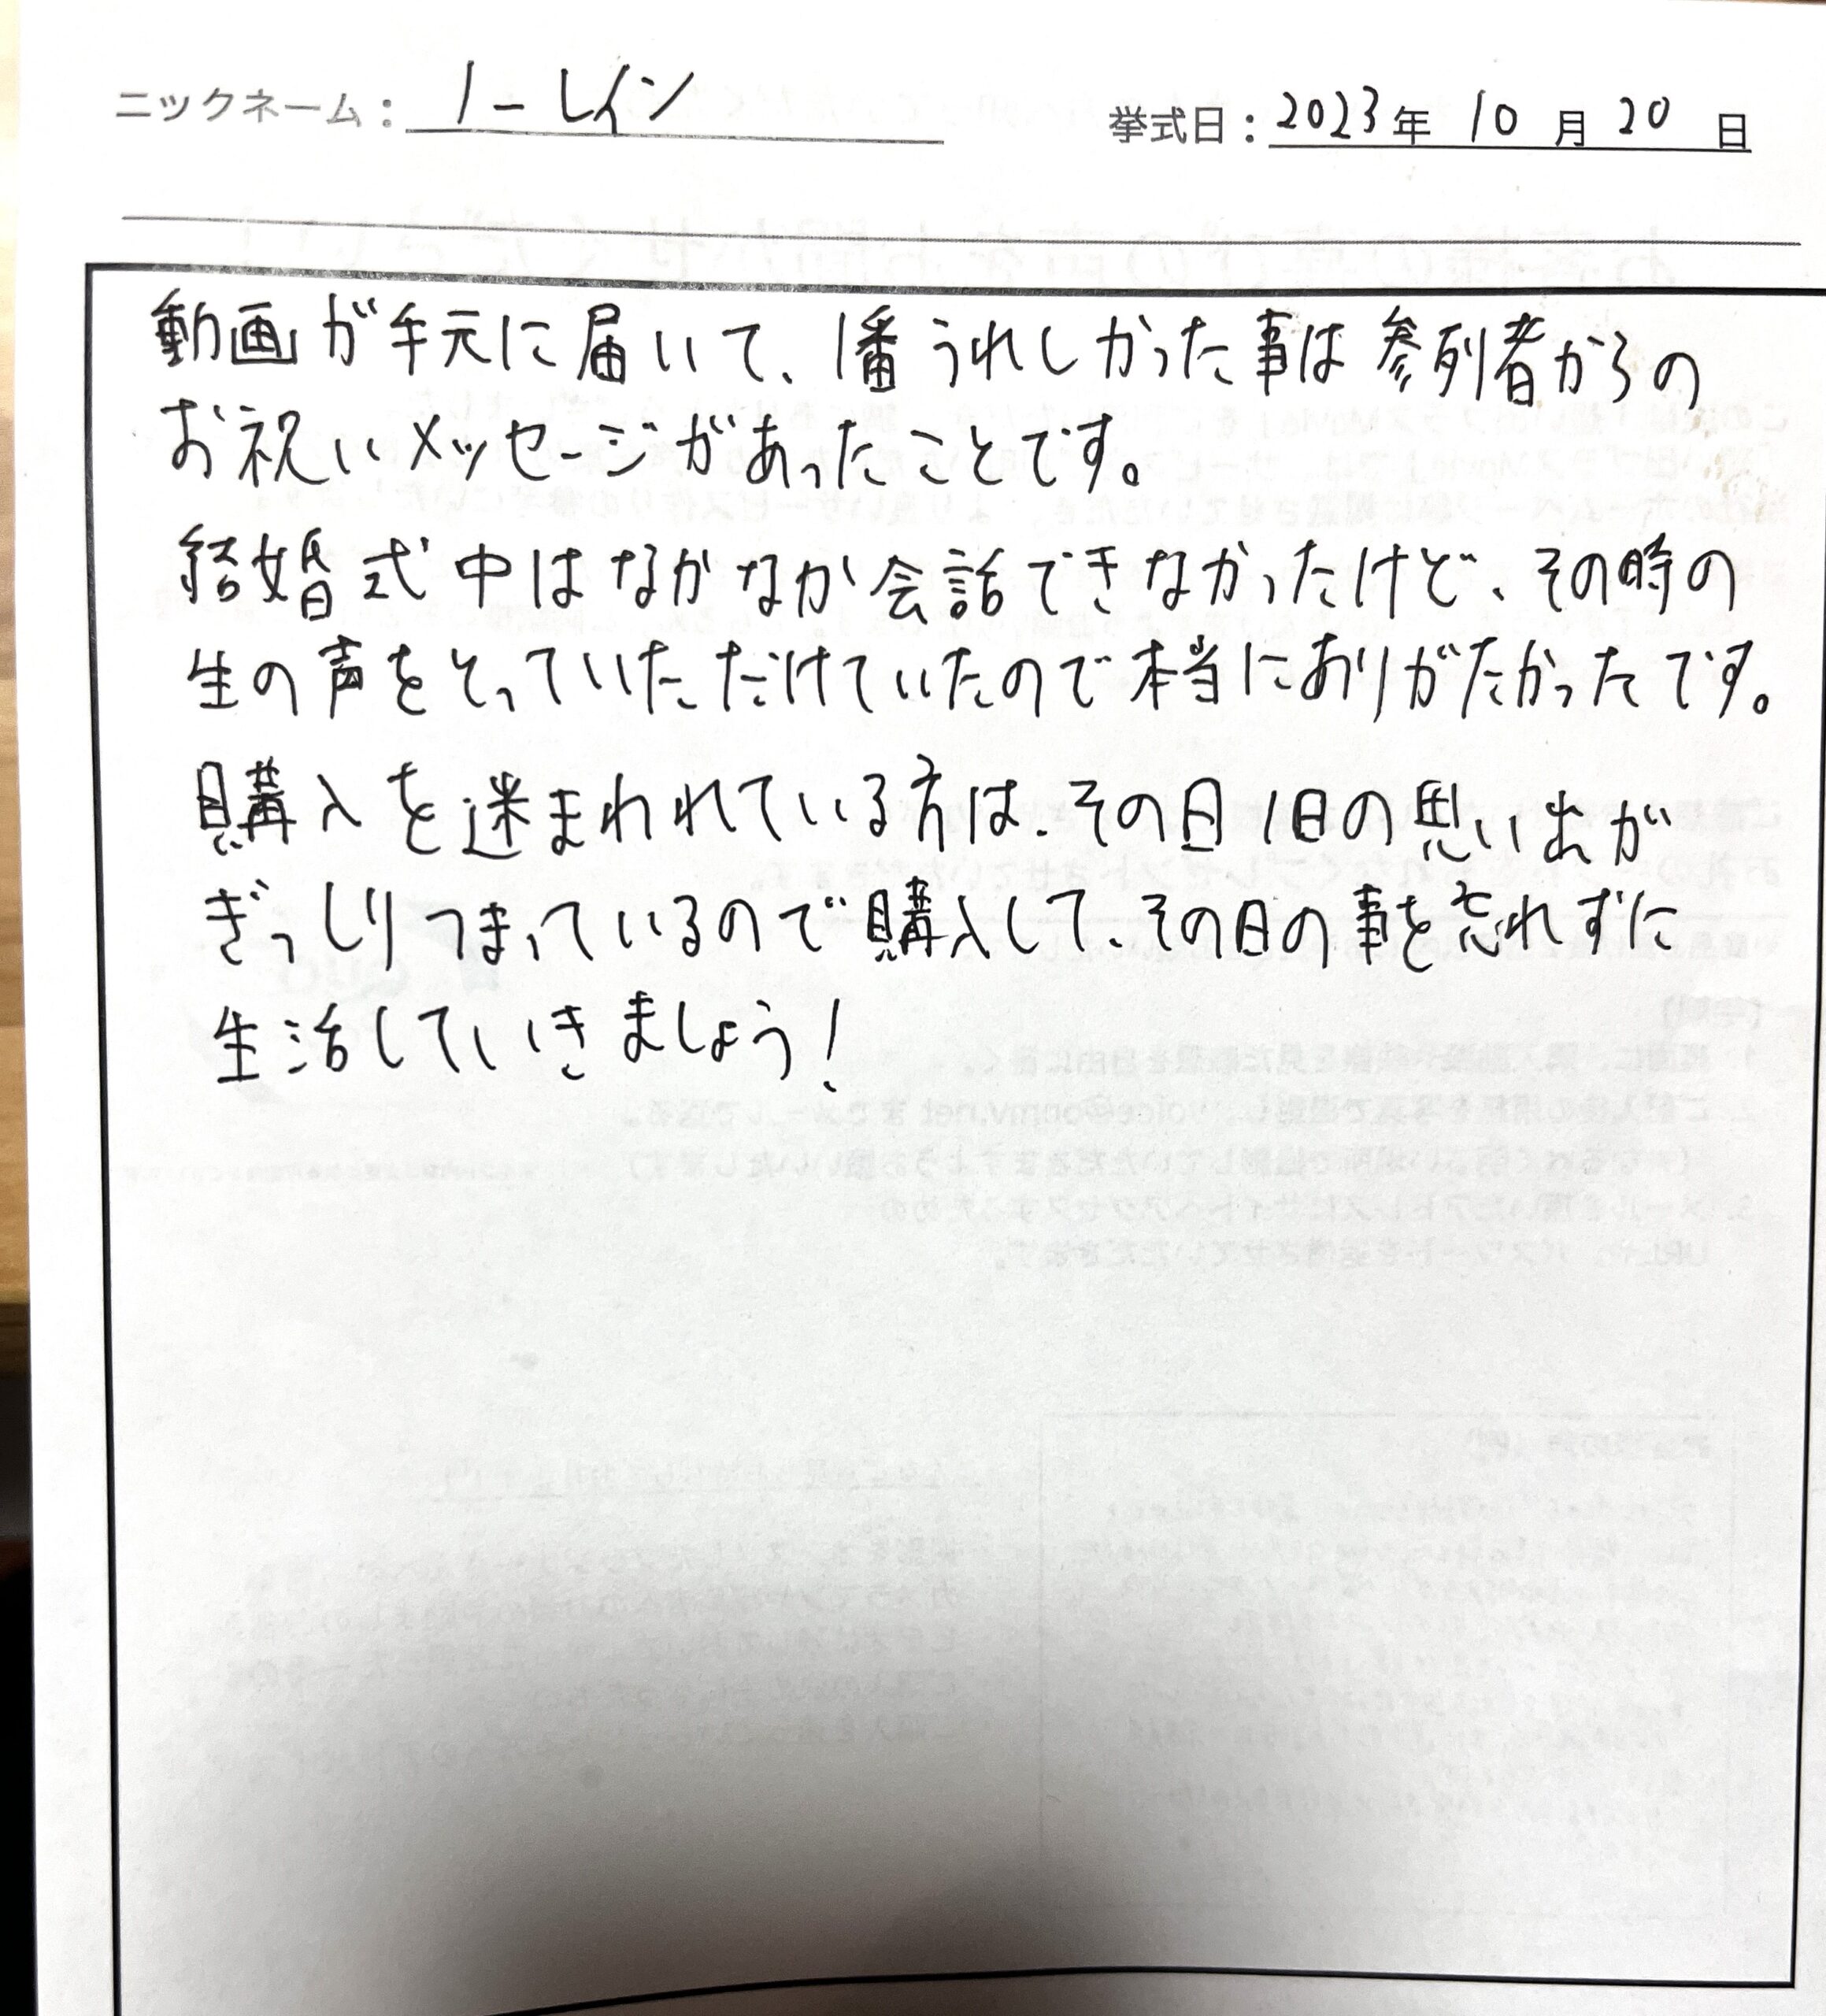 ニックネーム：ノーレイン
挙式日：2023年10月20日
動画が手元に届いて、1番うれしかった事は参列者からの
お祝いメッセージがあったことです。
結婚式中はなかなか会話できなかったけど、その時の
生の声をとっていただけていたので本当にありがたかったです。
購入を迷まわれている方は、その日1日の思い出が
ぎっしりつまっているので購入して、その日の事を忘れずに
生活していきましょう！